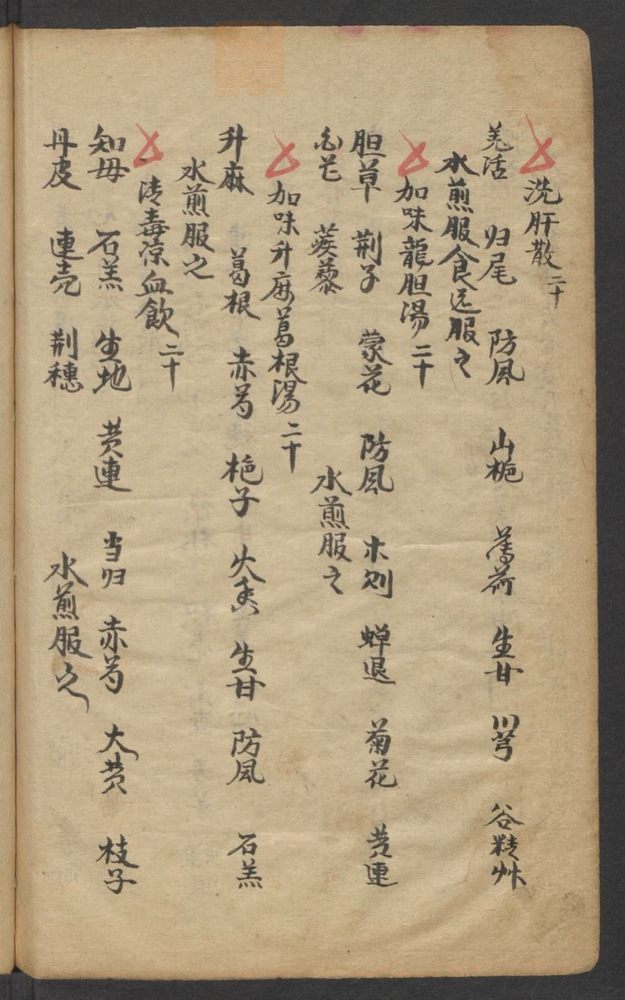 洗肝散 二十
羌活 归尾 防风 山栀 薄荷 生甘 川芎 谷精艸
水煎服食远服之
加味龍胆湯 二十
胆草 荆子 蒙花 防风 木则 蝉退 菊花 黄連
白芷 蒺藜 水煎服之
加味升麻葛根湯 二十
升麻 葛根 赤芍 栀子 生甘 防风 石羔
水煎服之
清毒凉血飲 二十
知母 石羔 生地 黄連 当归 赤芍 大黄 枝子
丹皮 連壳 荆穗 水煎服之